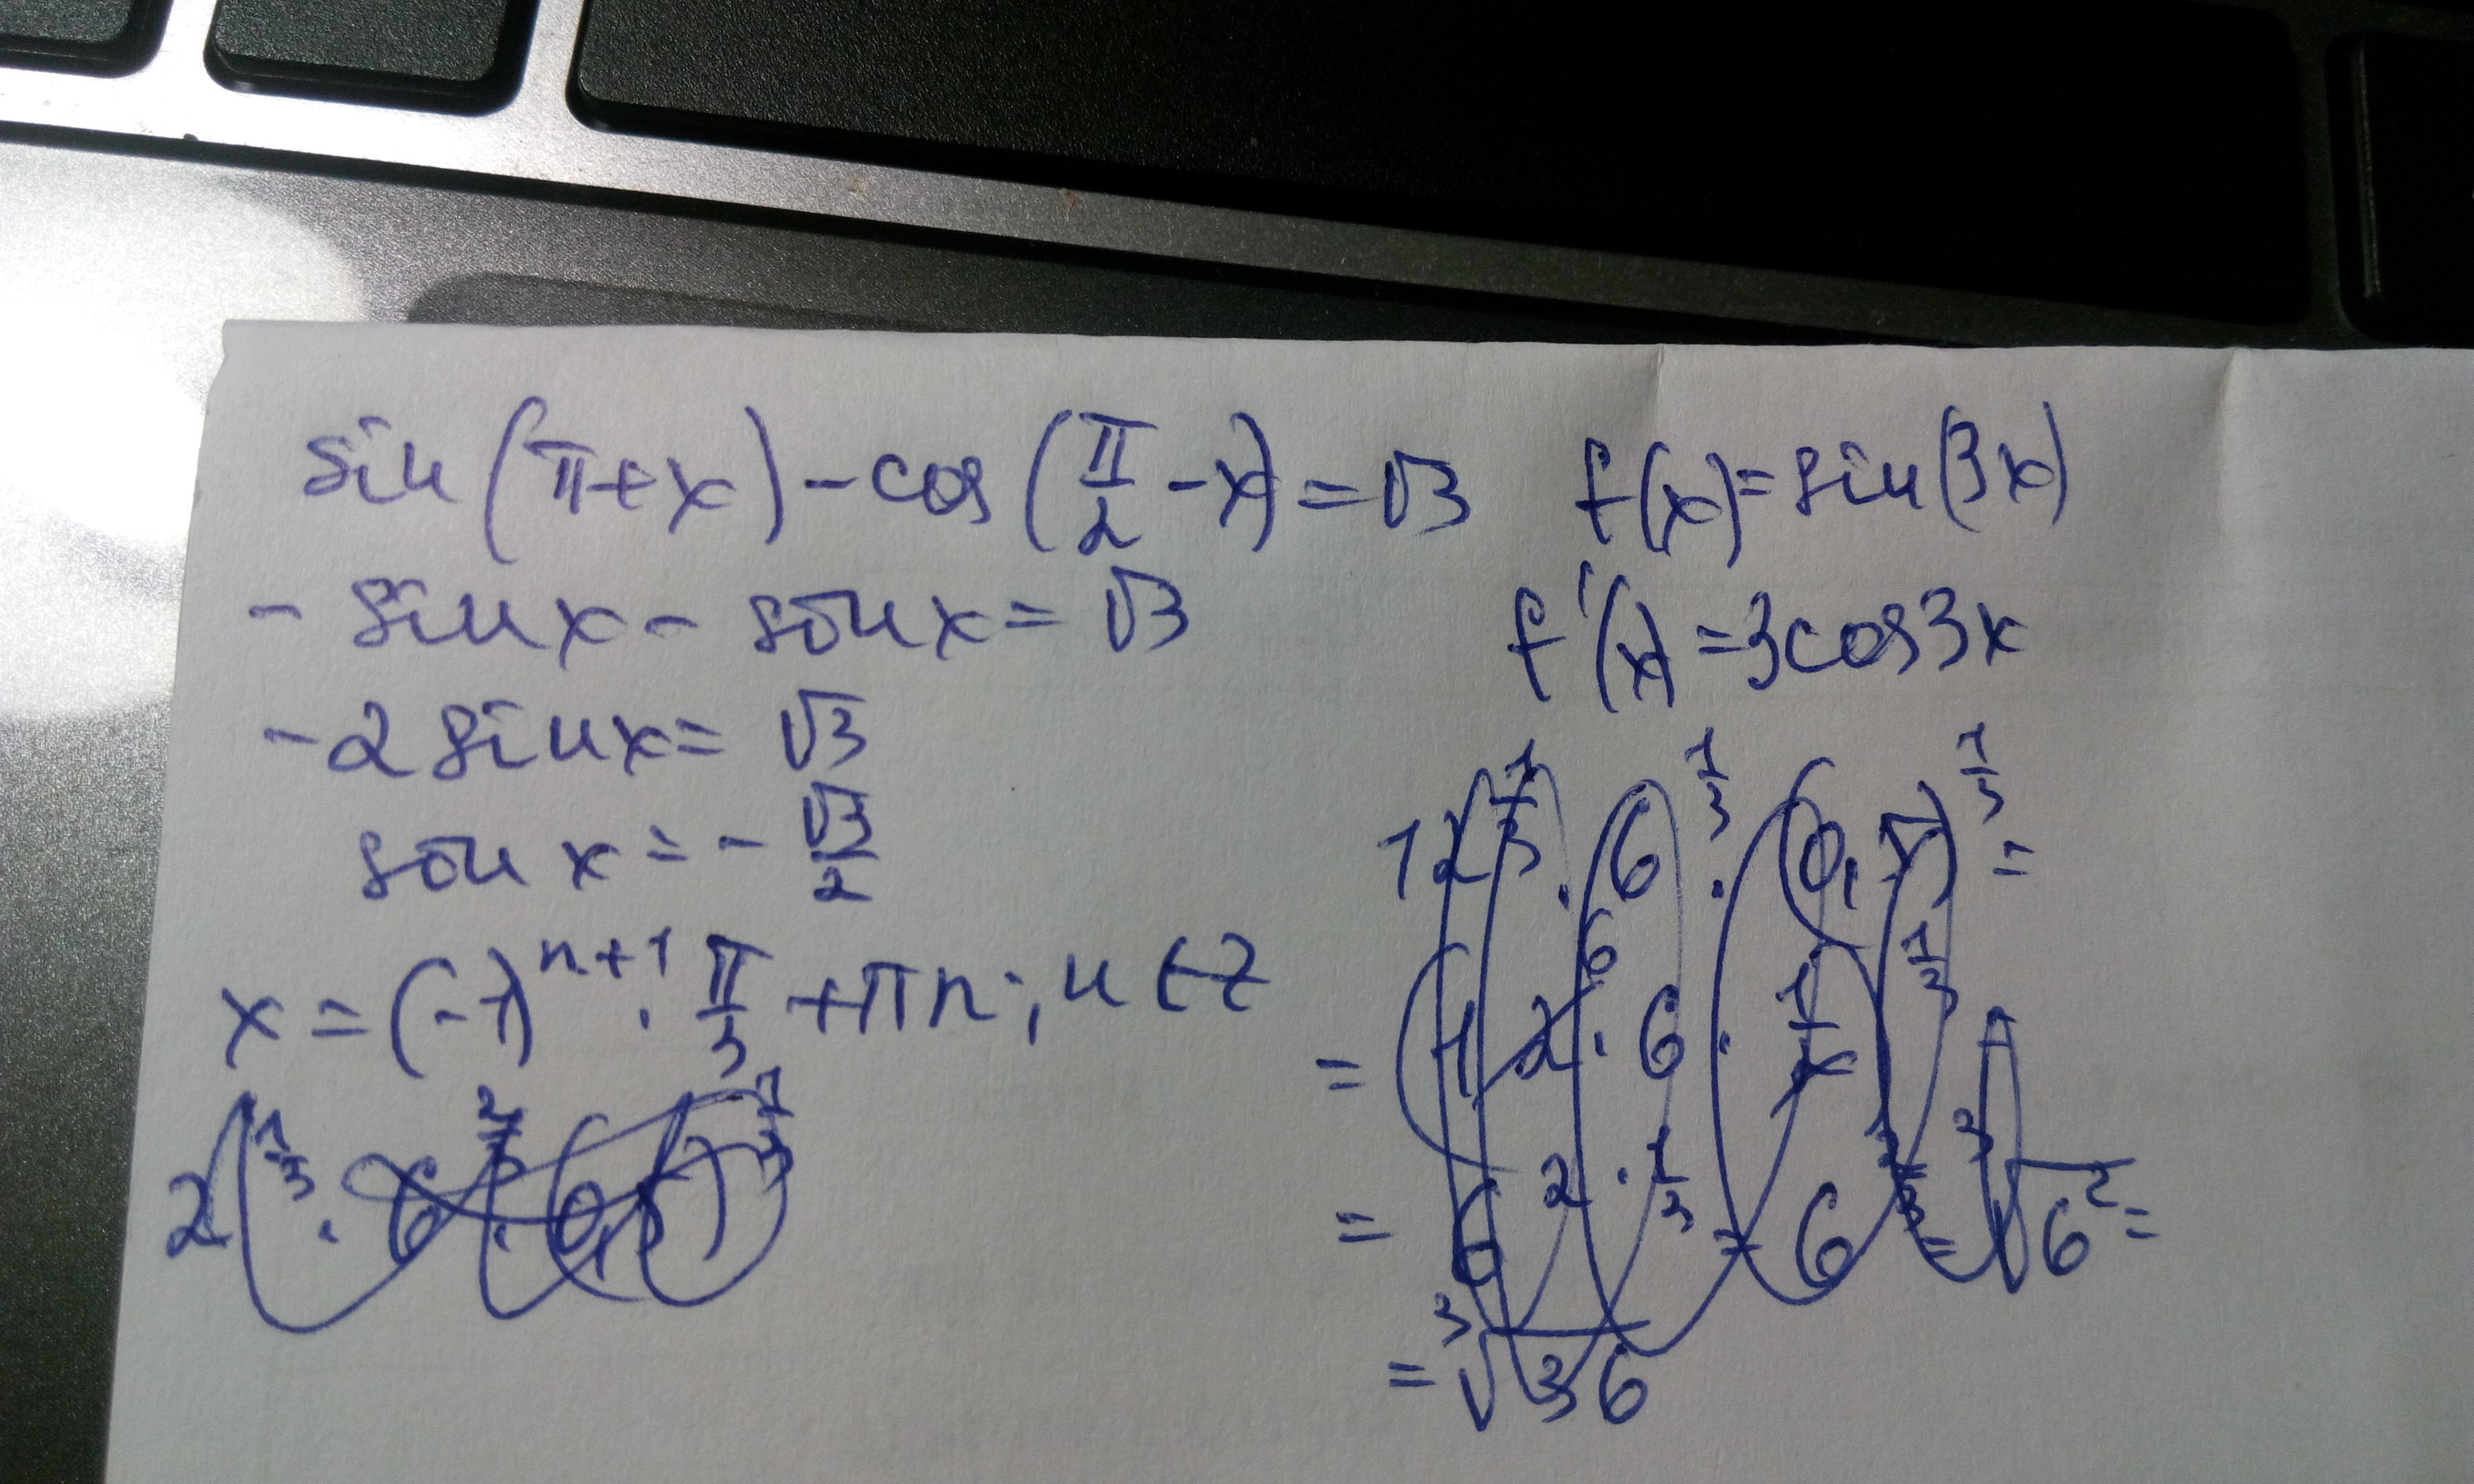 sin(π+x)-cos(π/2-x)=√3
-sinx-sinx=√3
-2sinx=√3
sinx=-√3/2
x=(-1)^{n+1}·π/3+πn; n∈Z
f(x)=sin(3x)
f'(x)=3cos3x
12^{1/3}·6^{1/3}·(0,5)^{1/3}=
=6^{2·1/3}=6^{2/3}=∛6²=
=∛36